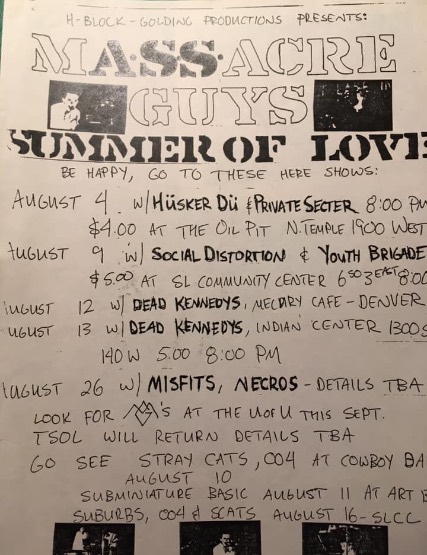 H-BLOCK-GOLDING PRODUCTIONS PRESENTS:
MASSACRE
GUYS
SUMMER OF LOVE
BE HAPPY, GO TO THESE HERE SHOWS:
AUGUST 4 w/ HÜSKER DÜ & PRIVATE SECTER 8:00 PM
$4.00 AT THE OIL PIT N.TEMPLE 1900 WEST
AUGUST 9 w/ SOCIAL DISTORTION & YOUTH BRIGADE
$5.00 AT SL COMMUNITY CENTER 6 SO 3 EAST 8:00
AUGUST 12 w/ DEAD KENNEDYS, MECURY CAFE - DENVER
UGUST 13 w/ DEAD KENNEDYS, INDIAN CENTER 1300 S
140 W 5.00 8:00 PM
AUGUST 26 w/ MISFITS, NECROS - DETAILS TBA
LOOK FOR 'S AT THE U OF U THIS SEPT.
TSOL WILL RETURN DETAILS TBA
GO SEE STRAY CATS, 004 AT COWBOY BA
AUGUST 10
SUBMINIATURE BASIC AUGUST 11 AT ART B
SUBURBS, 004 & SCATS AUGUST 16 - SLCC